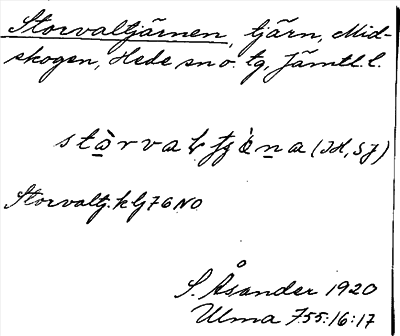 Storvaltjärnen, tjärn, Mid-
skogen, Hede sn o. tg, Jämtl. l.
(JH, SJ)
Storvaltj. klj 76 NO
S. Åsander 1920
Ulma 755:16:17